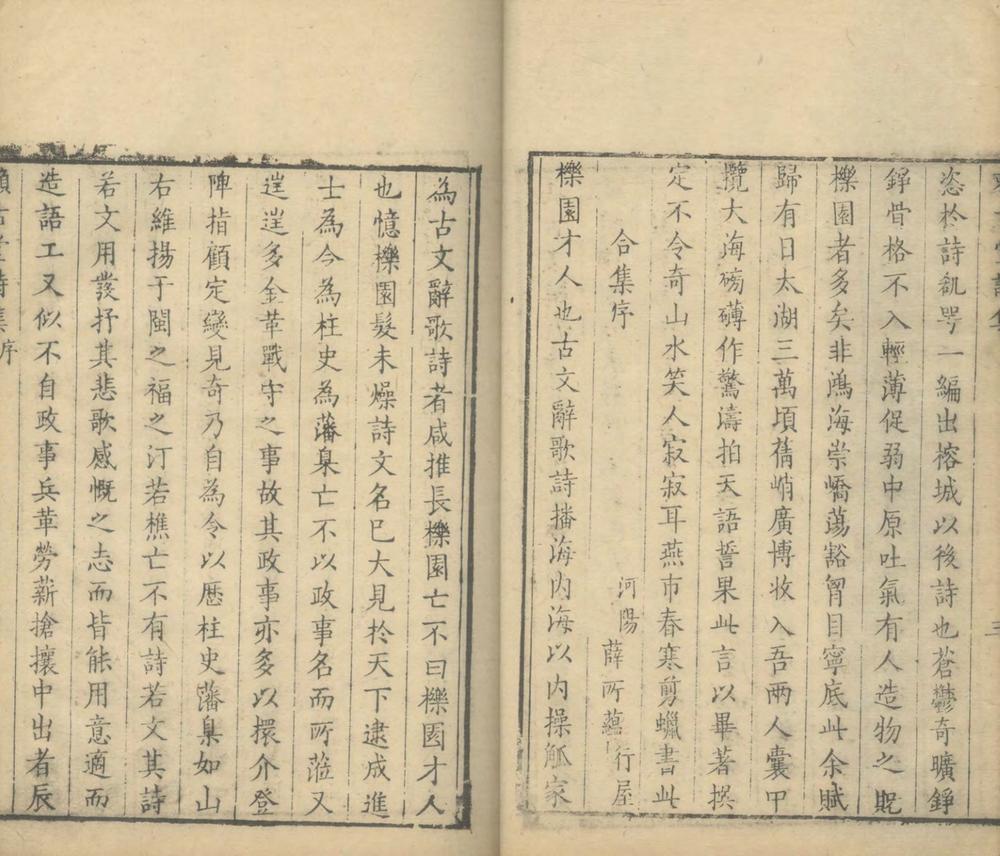 恣於詩瓻咢一編出榕城以後詩也蒼鬱奇曠錚
錚骨格不入輕薄促弱中原吐氣有人造物之貺
櫟園者多矣非鴻海崇嶠蕩豁胷目寧底此余賦
歸有日太湖三萬頃舊峭廣博收入吾兩人囊甲
攬大海磅礴作驚濤拍天語誓果此言以畢著撰
定不令奇山水笑人寂寂耳燕市春寒剪蠟書此
河陽薛所蘊行屋
合集序
櫟園才人也古文辭歌詩播海內海以內操觚家
為古文辭歌詩者咸推長櫟園亡不曰櫟園才人
也憶櫟園髮未燥詩文名已大見於天下逮成進
士為令為柱史為藩臬亡不以政事名而所蒞又
逞逞多金革戰守之事故其政事亦多以擐介登
陴指顧定變見奇乃自為令以歷柱史藩臬如山
右維揚于閩之福之汀若樵亡不有詩若文其詩
若文用發抒其悲歌感慨之志而皆能用意適而
造語工又似不自政事兵革勞薪搶攘中出者辰
賴古堂詩集序